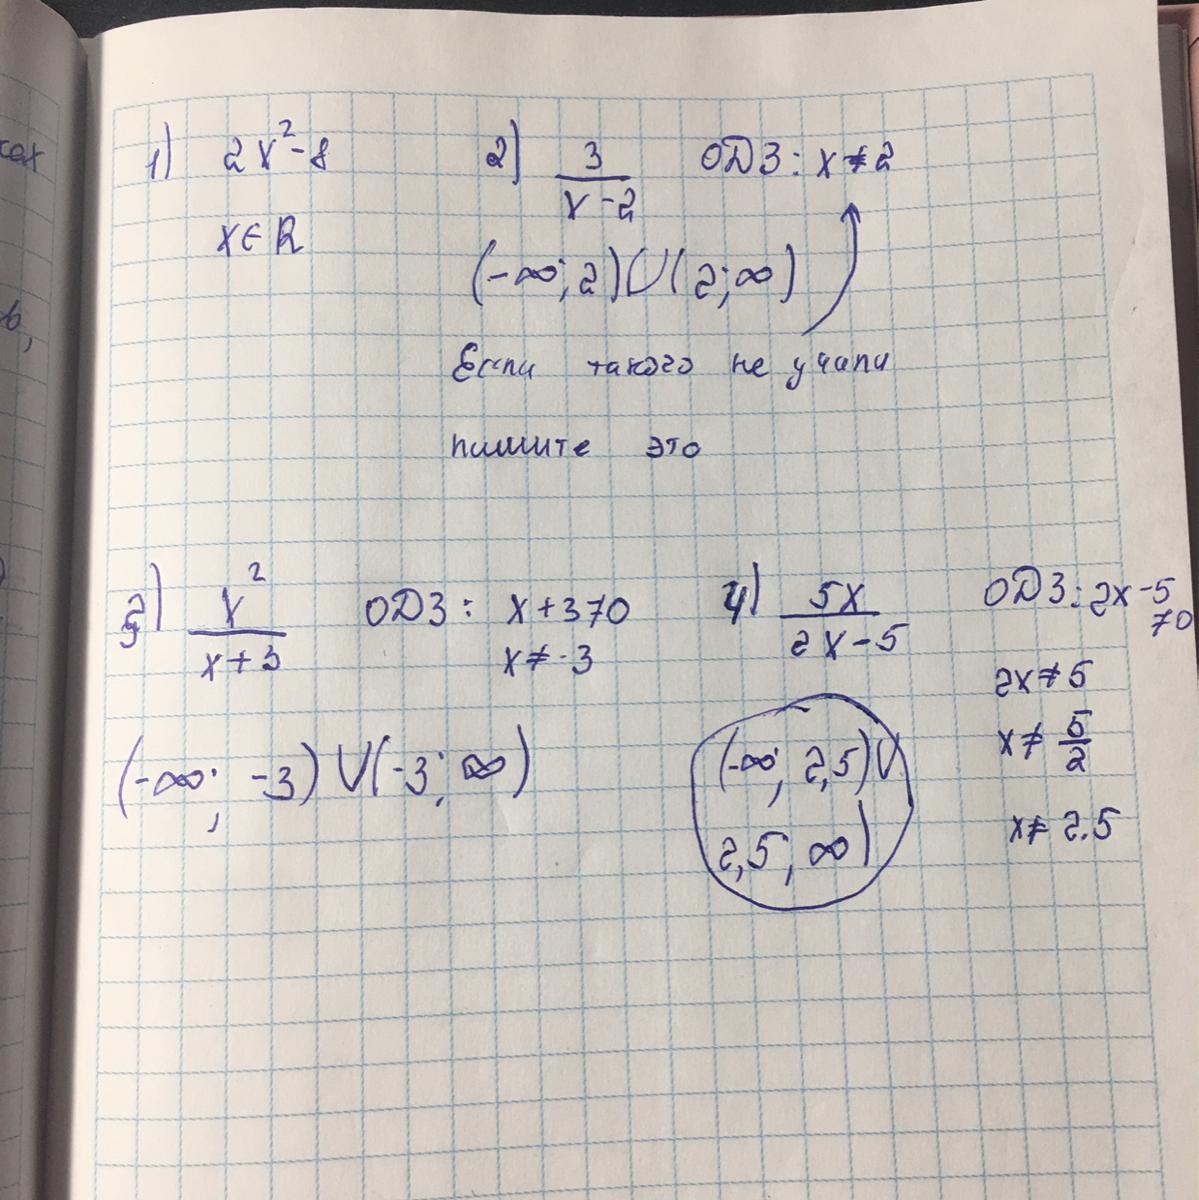 1) 2x²-8
x∈R
2) 3/(x-2) ОДЗ: x≠2
(-∞; 2)∪(2; ∞)
Если такого не учили
пишите это
3) x²/(x+3) ОДЗ: x+3≠0
x≠-3
(-∞; -3)∪(-3; ∞)
4) 5x/(2x-5) ОДЗ: 2x-5
≠0
2x≠5
x≠5/2
x≠2.5
(-∞; 2,5)∪
2,5; ∞)